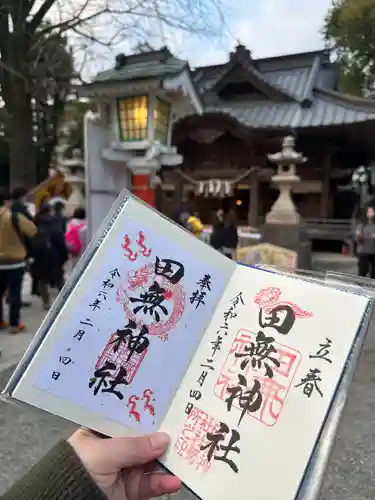 奉拝
田無神社
令和六年二月四日
立春
田無神社
令和六年二月四日